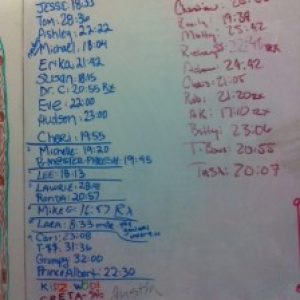 Jesse 18:33
Tom: 28:36
Ashley: 22:22
Michael: 18:04
Erika: 21:42
Susan: 18:15
Dr. C: 20:55 Rx
Eve: 22:00
Hudson: 23:00
Cheri: 19:55
Michelle: 19:20
19:45
LEE: 18:13
LAWRIE: 28:18
Ronda: 20:57
Mike G: 16:57 Rx
LARA: 8:33 mile
Cari: 23:08
T-: 31:36
Grumpy: 32:00
Prince Albert: 22:30
Kidz WOD!
GRETA-
Justin
Emily: 19:38
Matty: 25:42
Adam: 24:42
Chris: 21:05
Rob: 21:20 Rx
AK: 17:10 Rx
Billy: 23:06
T-Bone: 20:55
Tash: 20:07